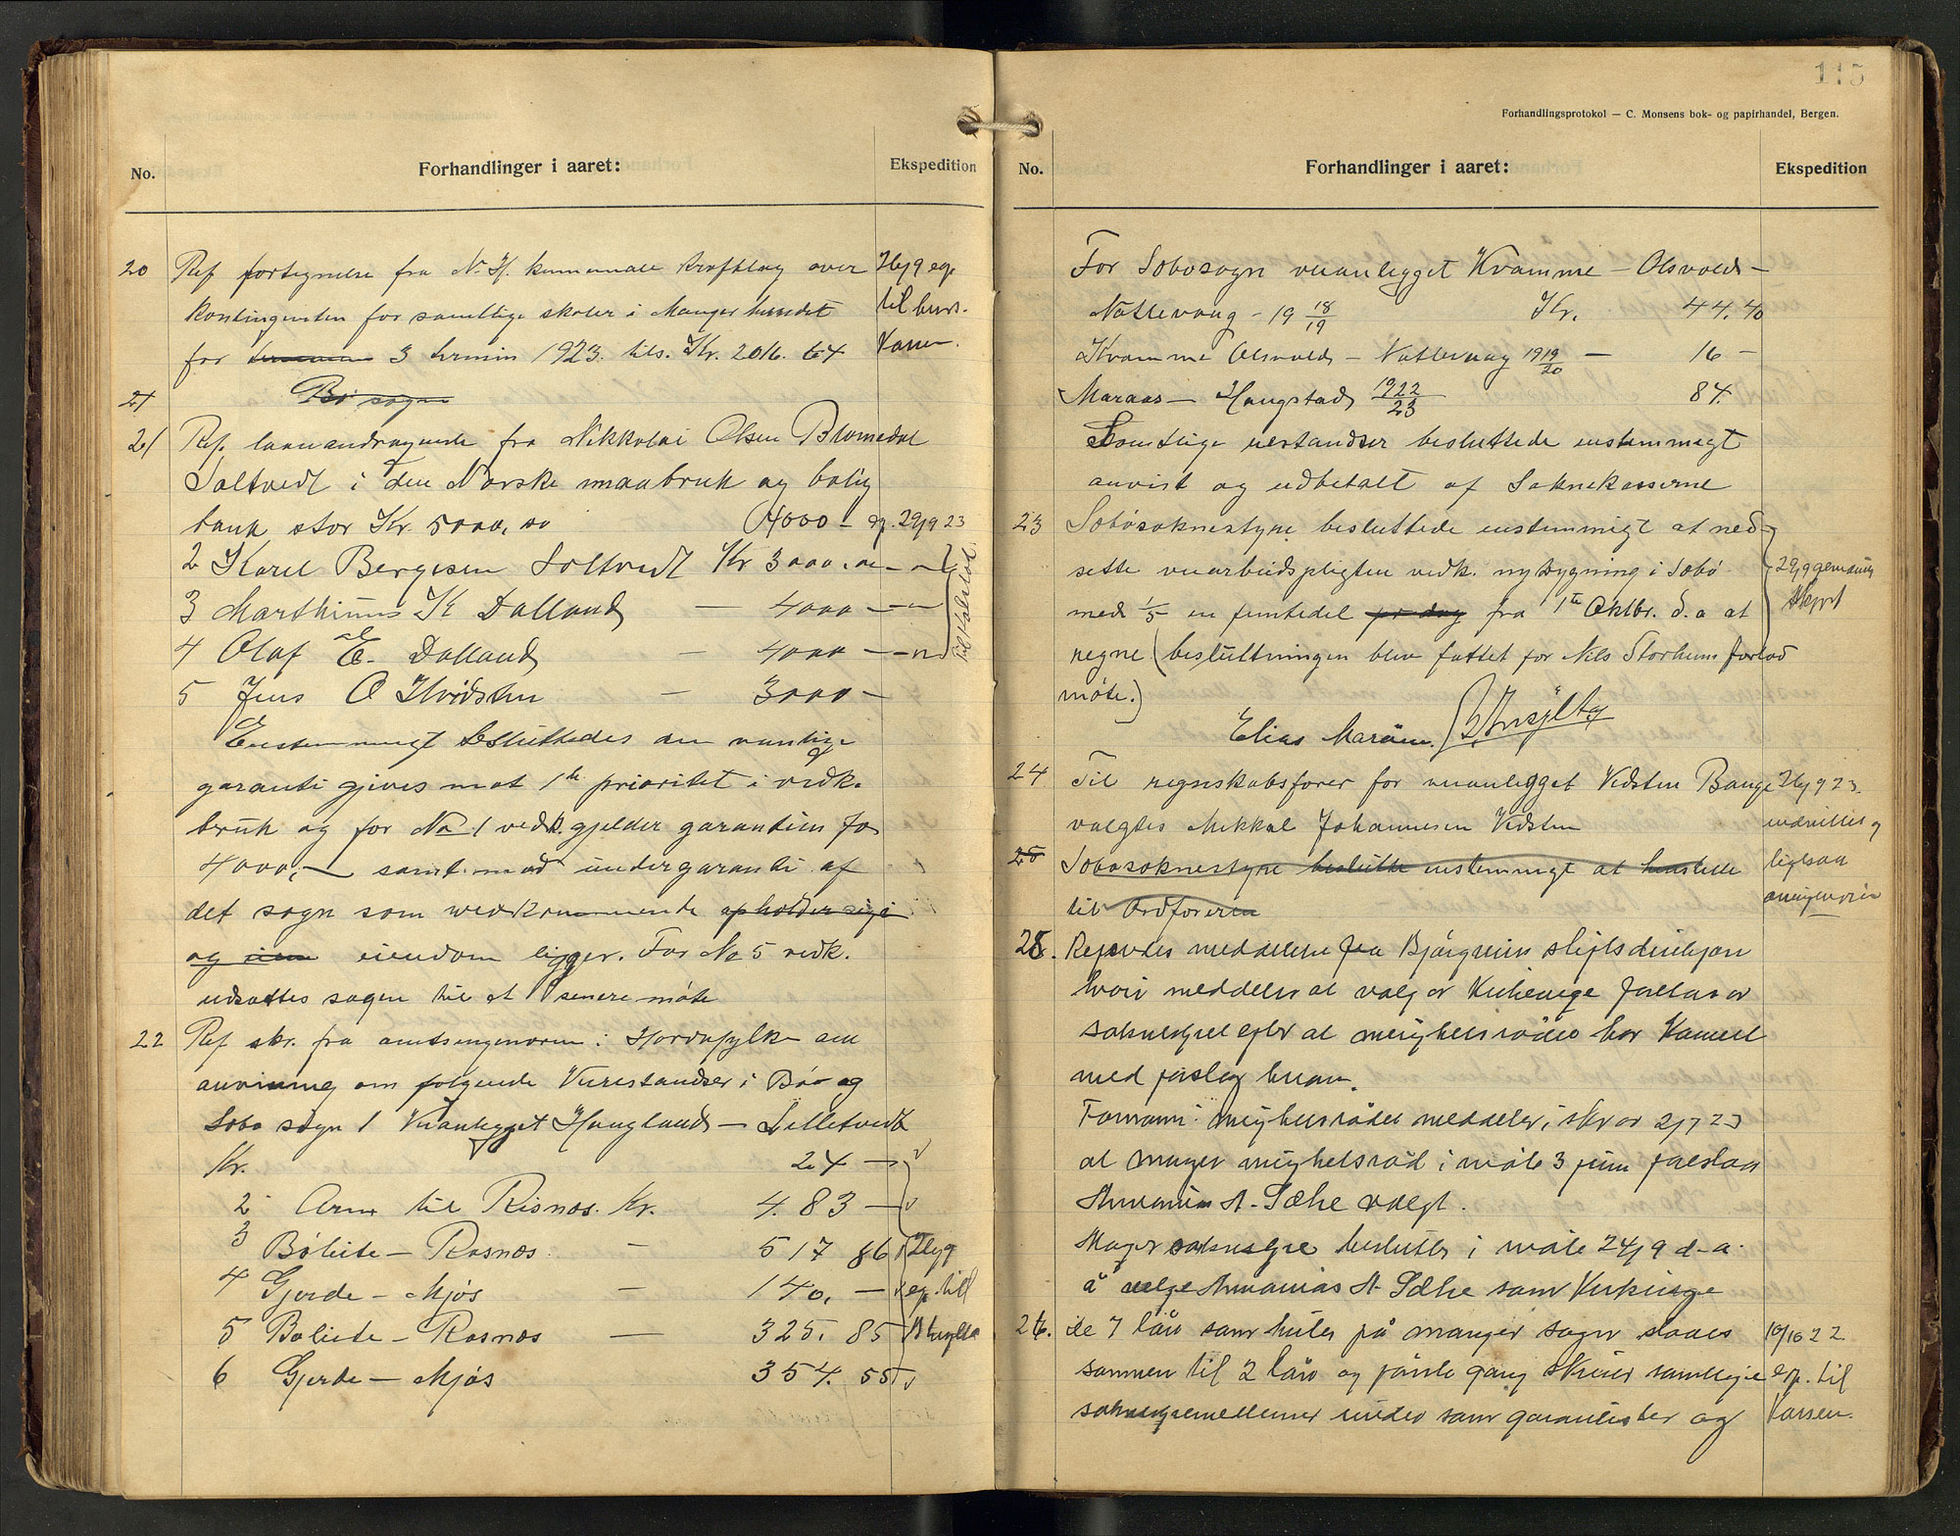 No.
Forhandlinger i aaret:
Ekspedition
20 Ref fortegnelse fra N. H. kommunale kraftlag over
kontingenten for samtlige skoler i Manger herredet
for 3 termin 1923. tils. Kr. 2016. 64
21 Bø sogn
21 Ref. laanandragende fra Nikkolai Olsen Blomedal
Soltvedt i den Norske smaabruk og bolig
bank stor Kr. 5000,00 4000 – ep. 29/9 23
2 Karl Bergesen Soltvedt Kr 3000.00 – " –
3 Marthinus K Dalland – 4000 – " –
4 Olaf E. Dalland – 4000 – " –
5 Jens O Hvidsten – 3000 –
Enstemmigt besluttedes den vanlige
garanti gives mot 1ste prioritet i vedk.
bruk og for No 1 vedk. gjelder garantien for
4000,– samt mod undergaranti af
det sogn som vedkommende opholder sig i
og eiendom ligger. For No 5 vedk.
udsattes sagen til et senere møte
22 Ref skr. fra amtsingeniøren i Hordafylke om
anvisning om følgende Veirestandser i Bø og
Sæbø sogn 1 Veianlegget Hauglands – Lilletvedt
Kr. 24 –
2 til Risnæs. Kr. 483 –
3 Bøleite – Rosnæs – 517 86
4 Gjerde – Mjøs – 140. –
5 Bøleite – Rosnæs – 325. 85
6 Gjerde – Mjøs 354. 55
115
Forhandlingsprotokol — C. Monsens bok- og papirhandel, Bergen.
No.
Forhandlinger i aaret:
Ekspedition
For Sæbøsogn veianlegget Kvamme – Olsvolds –
Nattevaag – 19 18/19 Kr. 44.40
Kvamme Olsvolds – Nattevaag 19 19/20 – 16 –
Maraas – Haugstad 1922/23 84.
Samtlige restandser besluttede enstemmigt
anvist og udbetalt af Soknekasserne
23 Sæbøsoknestyre besluttede enstemmigt at ned-
sette veiarbeidspligten vedk. nybygning i Sæbø
med 1/5 en femtedel pr dag fra 1te Oktbr. d. a at
regne (beslutningen blev fattet før Nils Storheim forlod
møte.)
Elias Marøen.
24 Til regnskabsfører for veianlegget Vidsten Bauge
valgtes Mikkal Johannesen Vidsten
25 Sæbøsoknestyre beslutte enstemmigt at henstille
til Ordføreren
25. meddelelse fra Bjørgvins stiftsdireksjon
hvori meddeles at valg av Kirkeverge foretas av
soknestyret efter at menighetsrådet har kommet
med forslag herom.
Formann i menighetsrådet meddeler i skr av 2/7 23
at Manger menighetsråd i møte 3 juni foreslaar
Ananias A. Sæhe valgt.
Manger soknestyre beslutter i møte 24/9 d. a.
å velge Ananias A. Sæhe som Kirkeverge
26. de 7 lån som hviler på manger sogn slaaes
sammen til 2 lån og første gang skriver samtlige
soknestyremedlemmer under som garantister og
10/10 22
exp. til
Larsen.